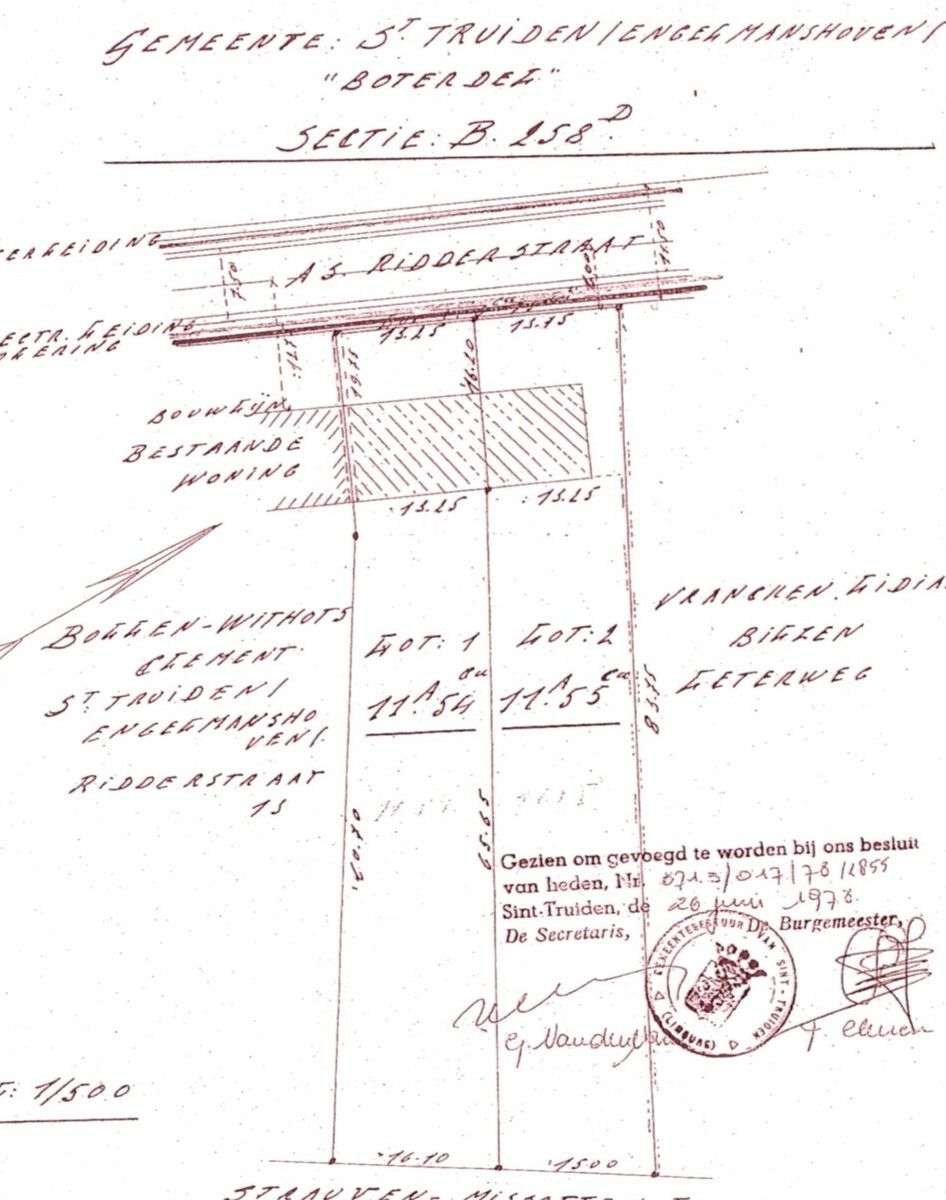 GEMEENTE: ST TRUIDEN/ENGELMANSHOVEN/
"BOTERDEL"
SECTIE: B. 258D
AS RIDDERSTRAAT
7.50
13.25
13.75
16.20
BOUWLIJN
BESTAANDE
WONING
13.25
13.25
BOLLEN-WITHOFS
CLEMENT
ST TRUIDEN/
ENGELMANSHO
VEN/.
RIDDERSTRAAT
15
LOT: 1
11A 54ca
LOT: 2
11A 55ca
VRANCKEN. LIDIA
BILZEN
LETERWEG
83.75
60.70
65.65
Gezien om gevoegd te worden bij ons besluit
van heden, Nr. 871.3/017/78/1855
Sint-Truiden, de 26 juni 1978.
De Secretaris,
De Burgemeester,
GEMEENTEBESTUUR VAN SINT-TRUIDEN (LIMBURG)
: 1/500
16.10
15.00